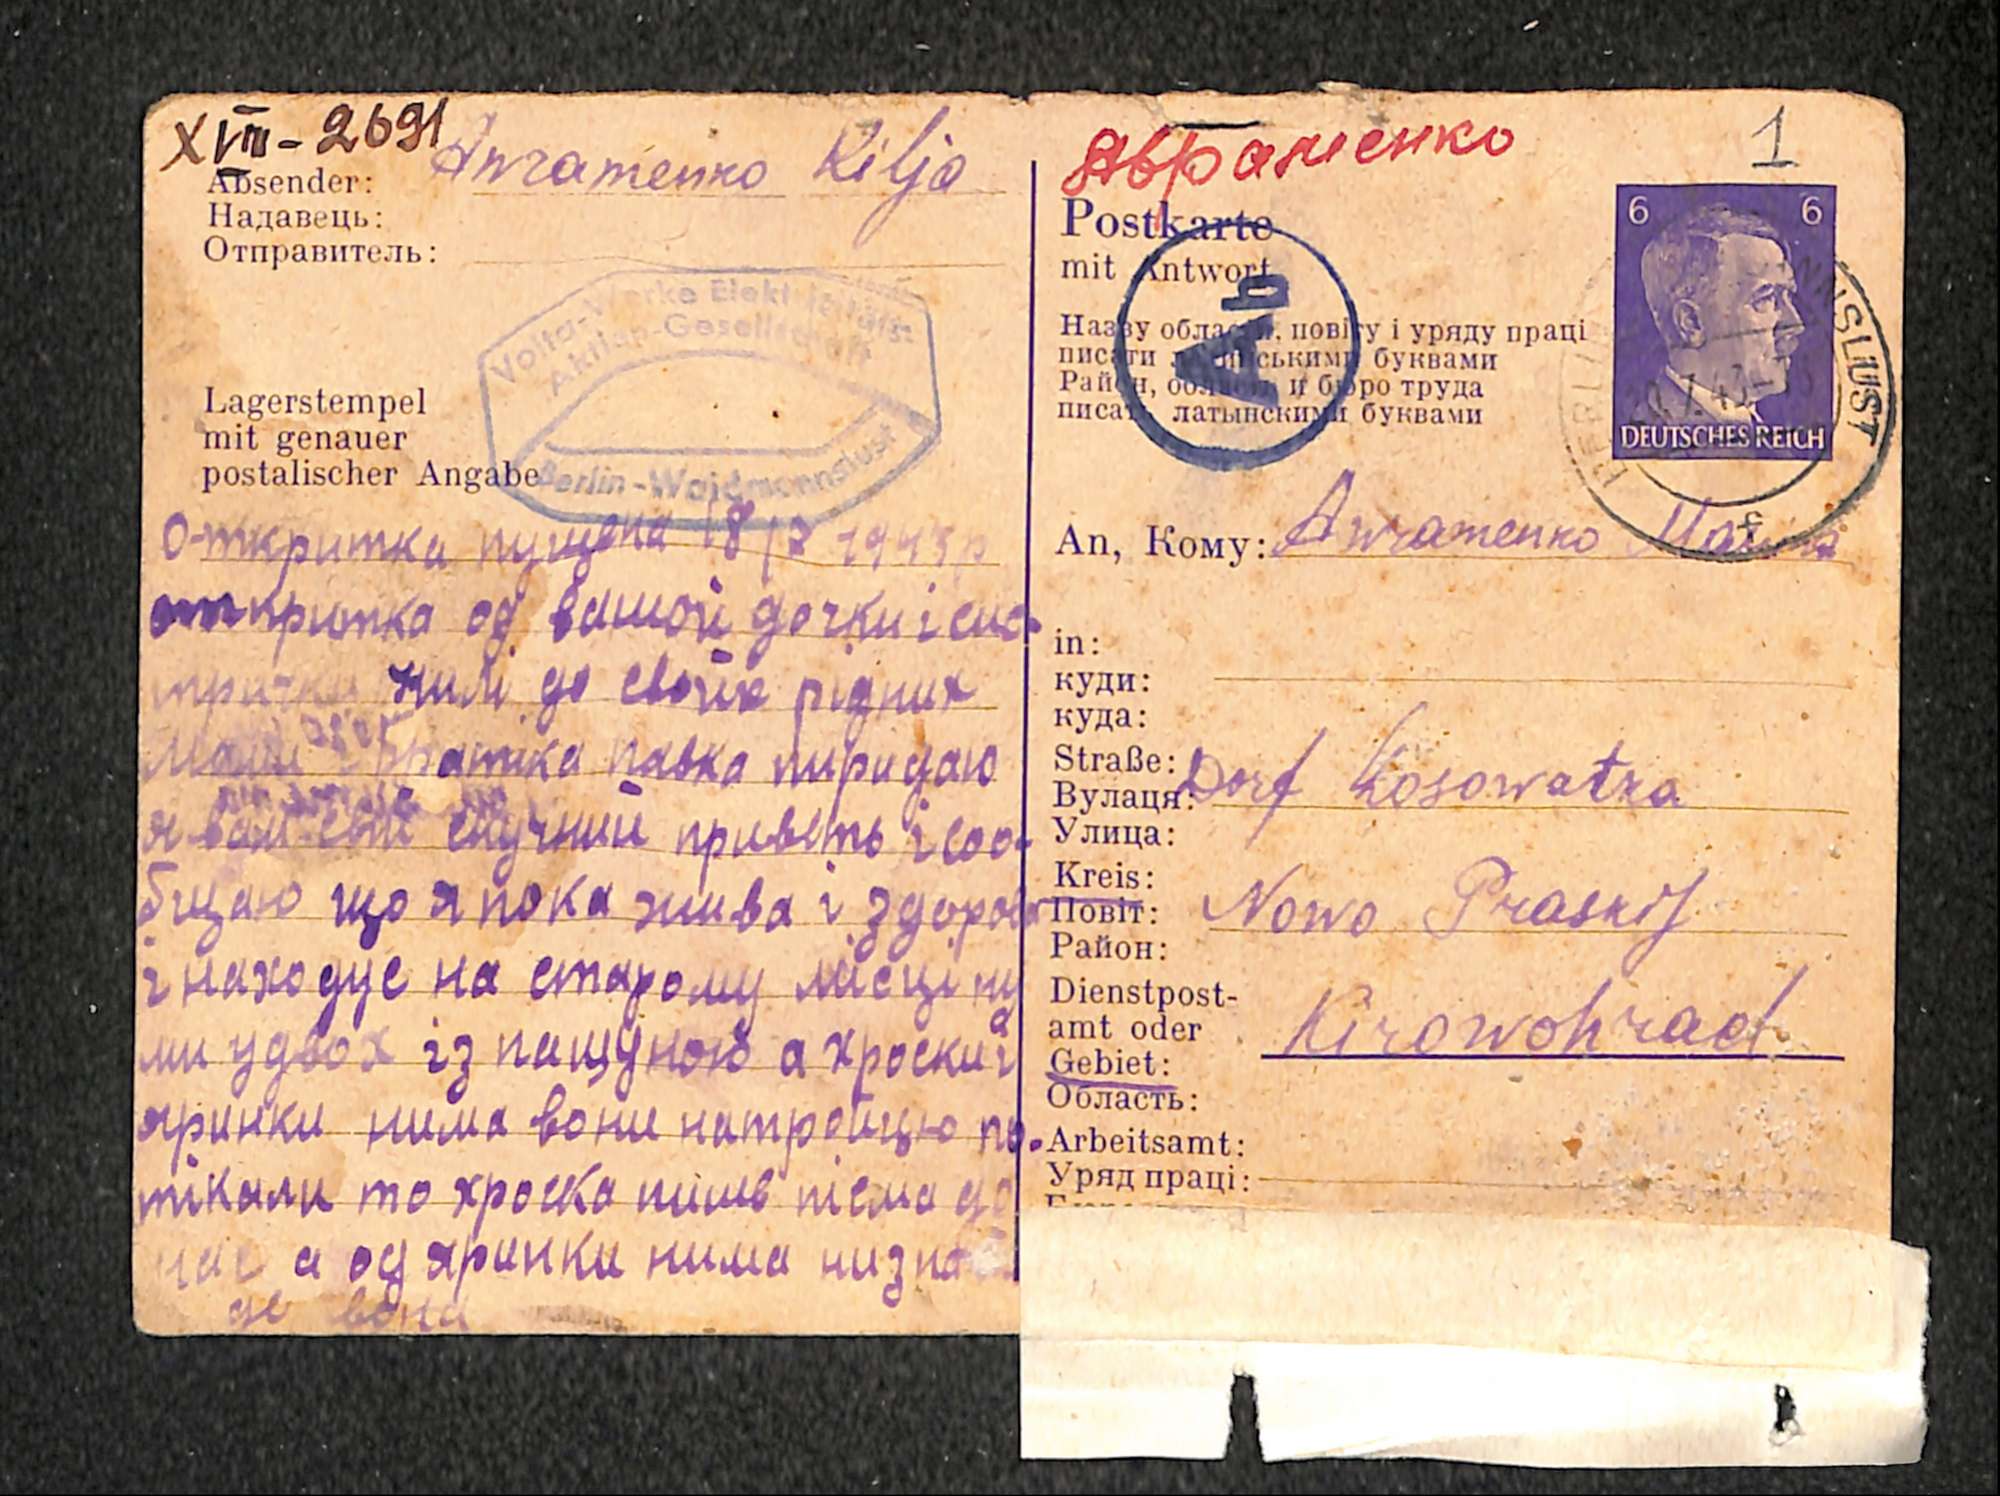 XVIII-2691
Absender: Awramenko Kilja
Надавець:
Отправитель:
Volta-Werke Elektricitäts-
Aktien-Gesellschaft
Berlin-Waidmannslust
Lagerstempel
mit genauer
postalischer Angabe
Откритка пущена 18/7 1943р
откритка од вашой дочки і сис-
трички Килі до свойх рідних
мами і братіка павка пиридаю
я вам свій скучний привєть і соо-
бщаю що я пока жива і здорова
і находус на старому місці
ми удвох із пащуною а хроски і
яринки нима вони натройцю по-
тікали то хроска пише пісма до
нас а од яринки нима низнаєм
де вона
Авраменко
1
Postkarte
mit Antwort
Ab
Назву области, повіту і уряду праці
писати латинськими буквами
Район, область и бюро труда
писать латынскими буквами
6 6
DEUTSCHES REICH
BERLIN-WAIDMANNSLUST
f
An, Кому: Awramenko
in:
куди:
куда:
Straße: Dorf Kosowatka
Вулаця:
Улица:
Kreis: Nowo Praskij
Повіт:
Район:
Dienstpost-
amt oder Kirowohrad
Gebiet:
Область:
Arbeitsamt:
Уряд праці: